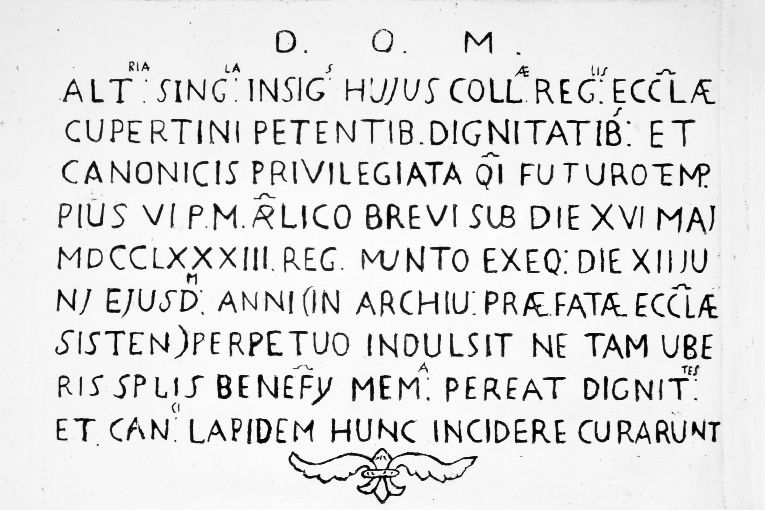 D. O. M.
ALTRIA: SINGLA: INSIGS HUJUS COLLÆ. REGLIS: ECCL̃Æ
CUPERTINI PETENTIB. DIGNITATIBS: ET
CANONICIS PRIVILEGIATA Q̃I FUTURO TEMP.
PIUS VI P.M. Æ̃LICO BREVI SUB DIE XVI MAJ
MDCCLXXXIII. REG. MUNTO EXEQ: DIE XII JU
NJ EJUSDM: ANNI (IN ARCHIU: PRÆFATÆ ECCL̃Æ
SISTEN) PERPETUO INDULSIT NE TAM UBE
RIS SPLIS BENEF̃Y MEMA: PEREAT DIGNITTES:
ET CANCI: LAPIDEM HUNC INCIDERE CURARUNT